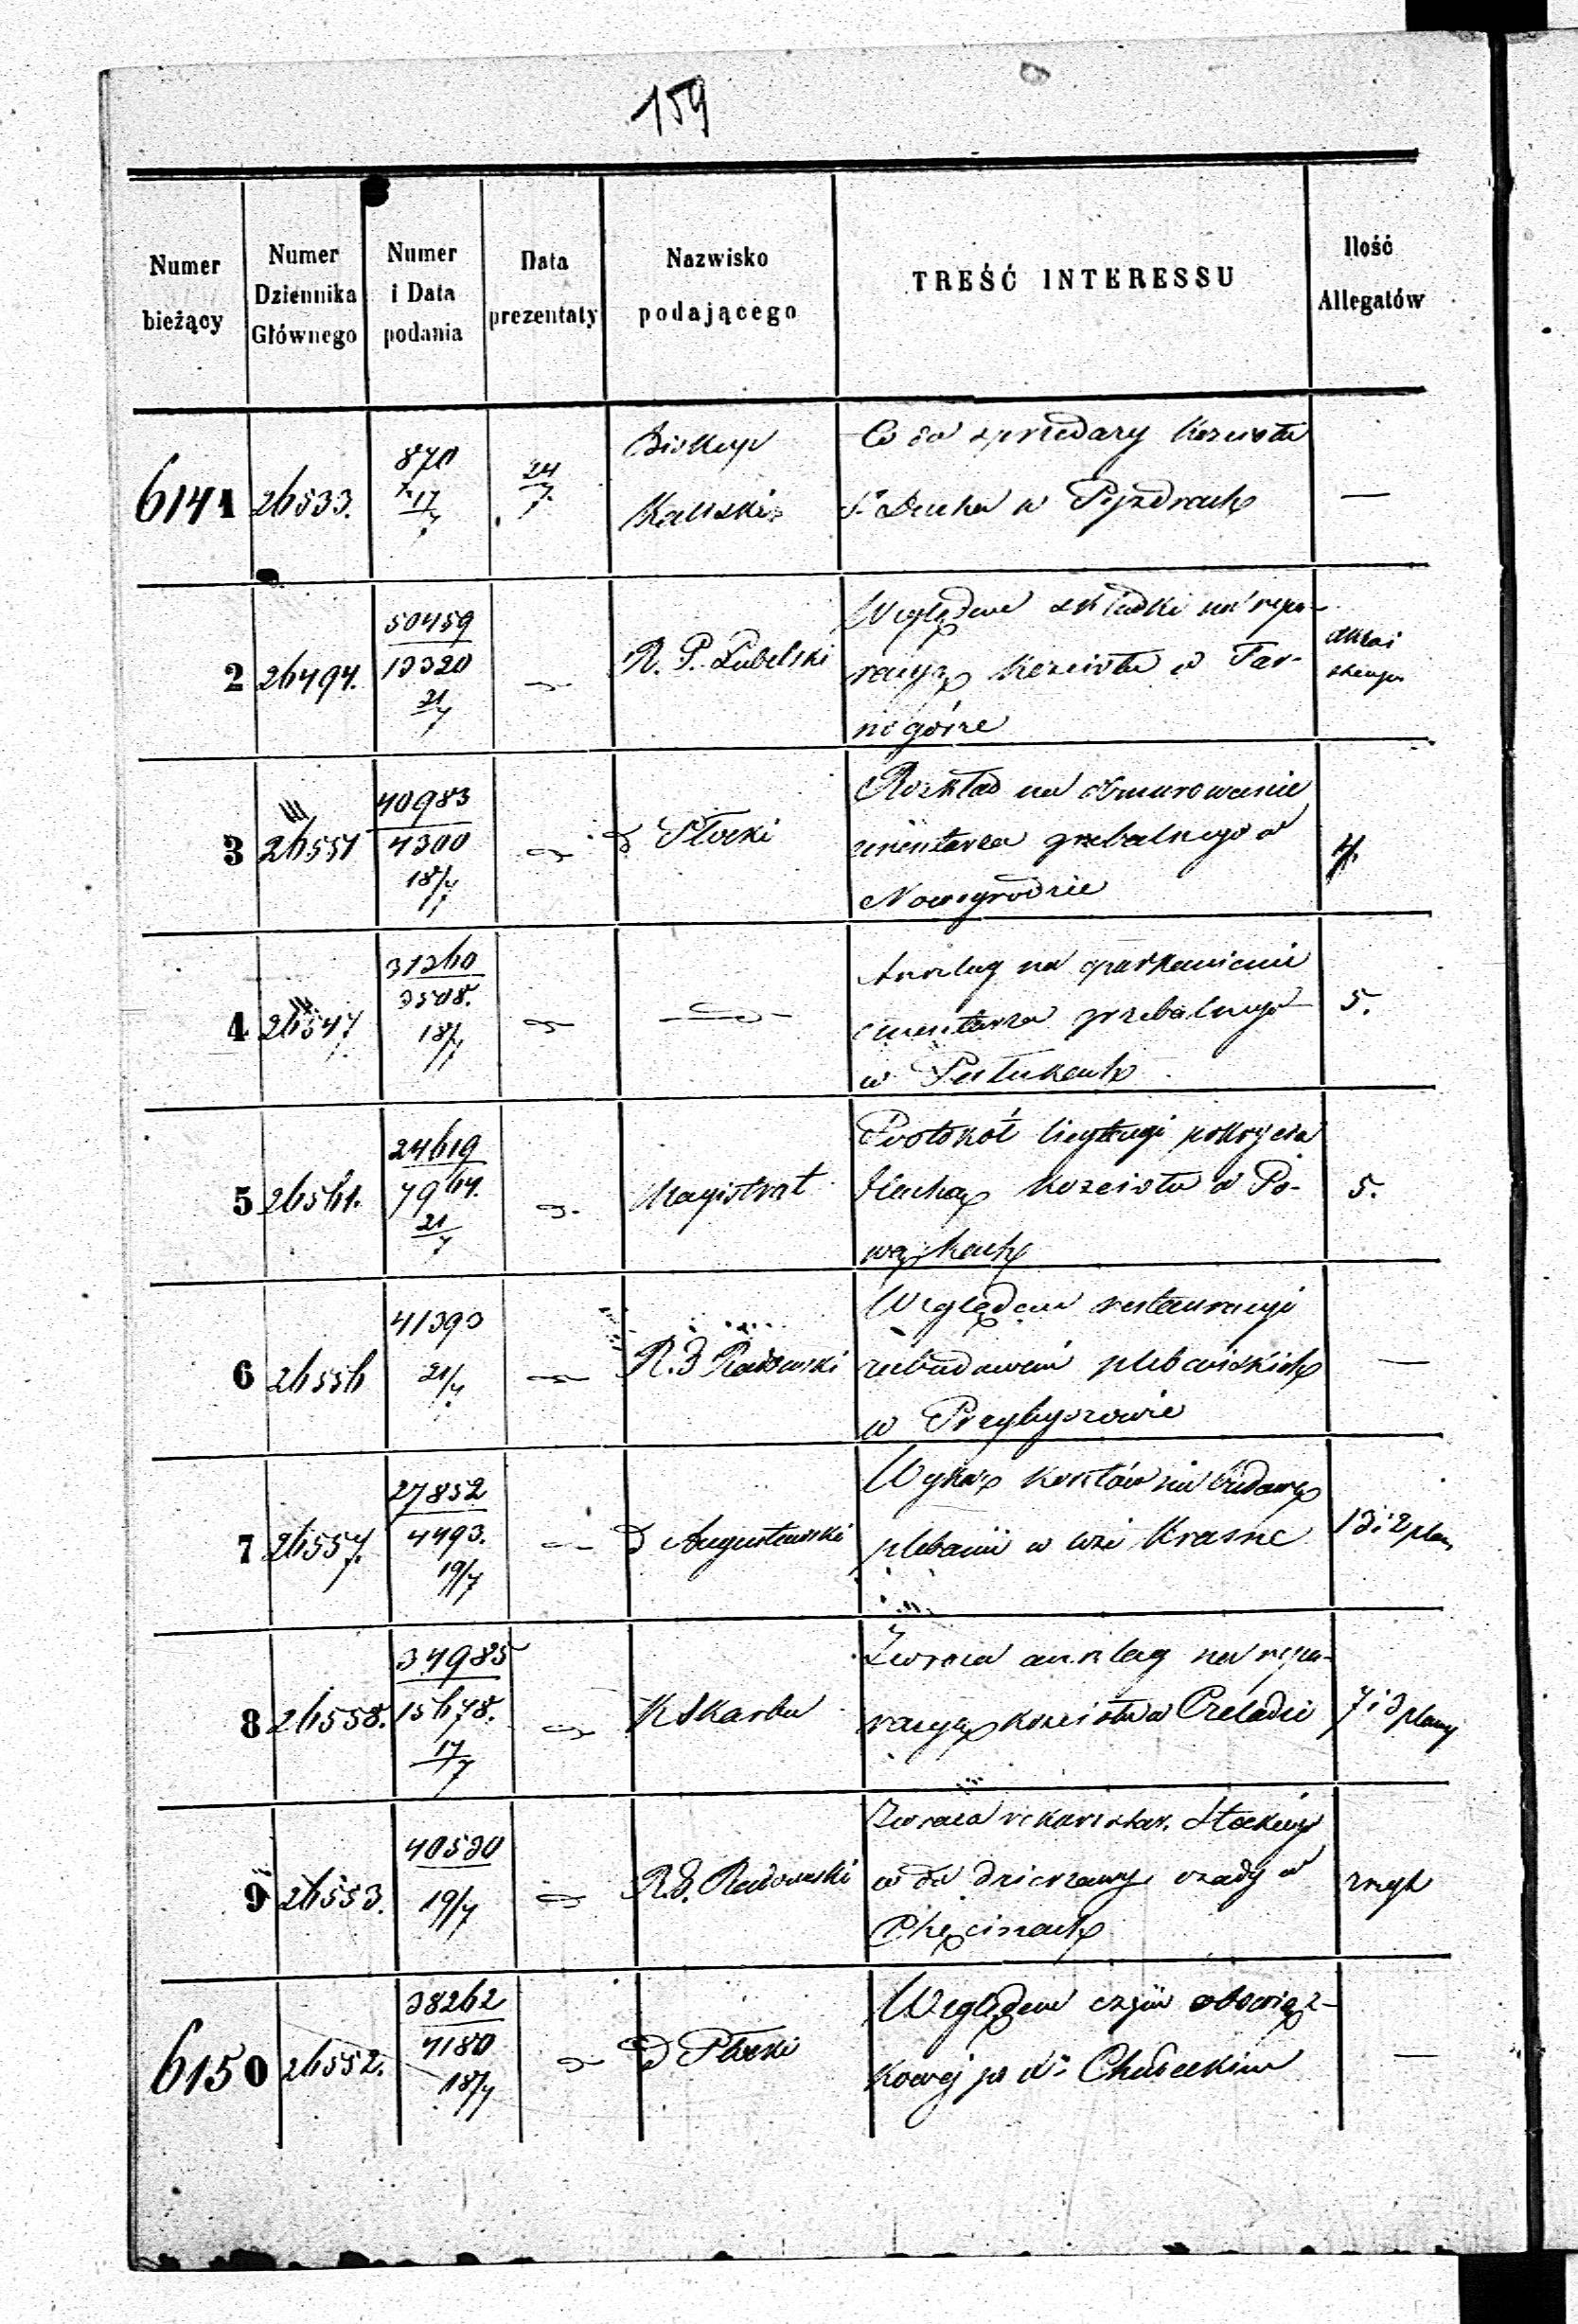 159
Numer bieżący | Numer Dziennika Głównego | Numer i Data podania | Data prezentaty | Nazwisko podającego | TREŚĆ INTERESSU | Ilość Allegatów
6141 | 26533. | 870 17/7 | 24/7. | Biskup Kaliski | Co do sprzedazy kościoła
S. Ducha w Pyzdrach | —
2 | 26494. | 50459 13320 21/7 | R. P. Lubelski | Względem składki na repa-
racyą kościoła w Tar-
nogórze
3 | 26551 | 40983 4300 18/7 | Płocki | Rozkład na obmurowanie
cmentarza grzebalnego w
Nowogrodzie | 4.
4 | 26547 | 31260 3508. 18/7 | Anszlag na oparkanienie
cmentarza grzebalnego
w Pułtuku | 5.
5 | 26561. | 24619 7964. 21/7 | Magistrat | Protokół licytacyi pokrycia
blachą kościoła w Po-
wązkach | 5.
6 | 26556 | 41393 21/7 | R. G. Radomski | Względem restauracyi
zabudowań plebańskich
w Przybyszewie | —
7 | 26557. | 27852 4493. 19/7 | Augustowski | Wykaz kosztów na budowę
plebanii w wsi Krasne | 13 i 2 plan
8 | 26558. | 34985 15678. 17/7 | K Skarbu | Zwraca anszlag na repa-
racyą kościoła w Czeladzi | 7 i 3 plany
9 | 26553. | 40530 19/7 | R. G. Radomski | Zwraca
w do dzierzawy osady w
Chęcinach
6150 | 26552. | 38262 4180 18/7 | Płocki | Względem czyn obowiąz-
kowej po X. Chudeckim | —